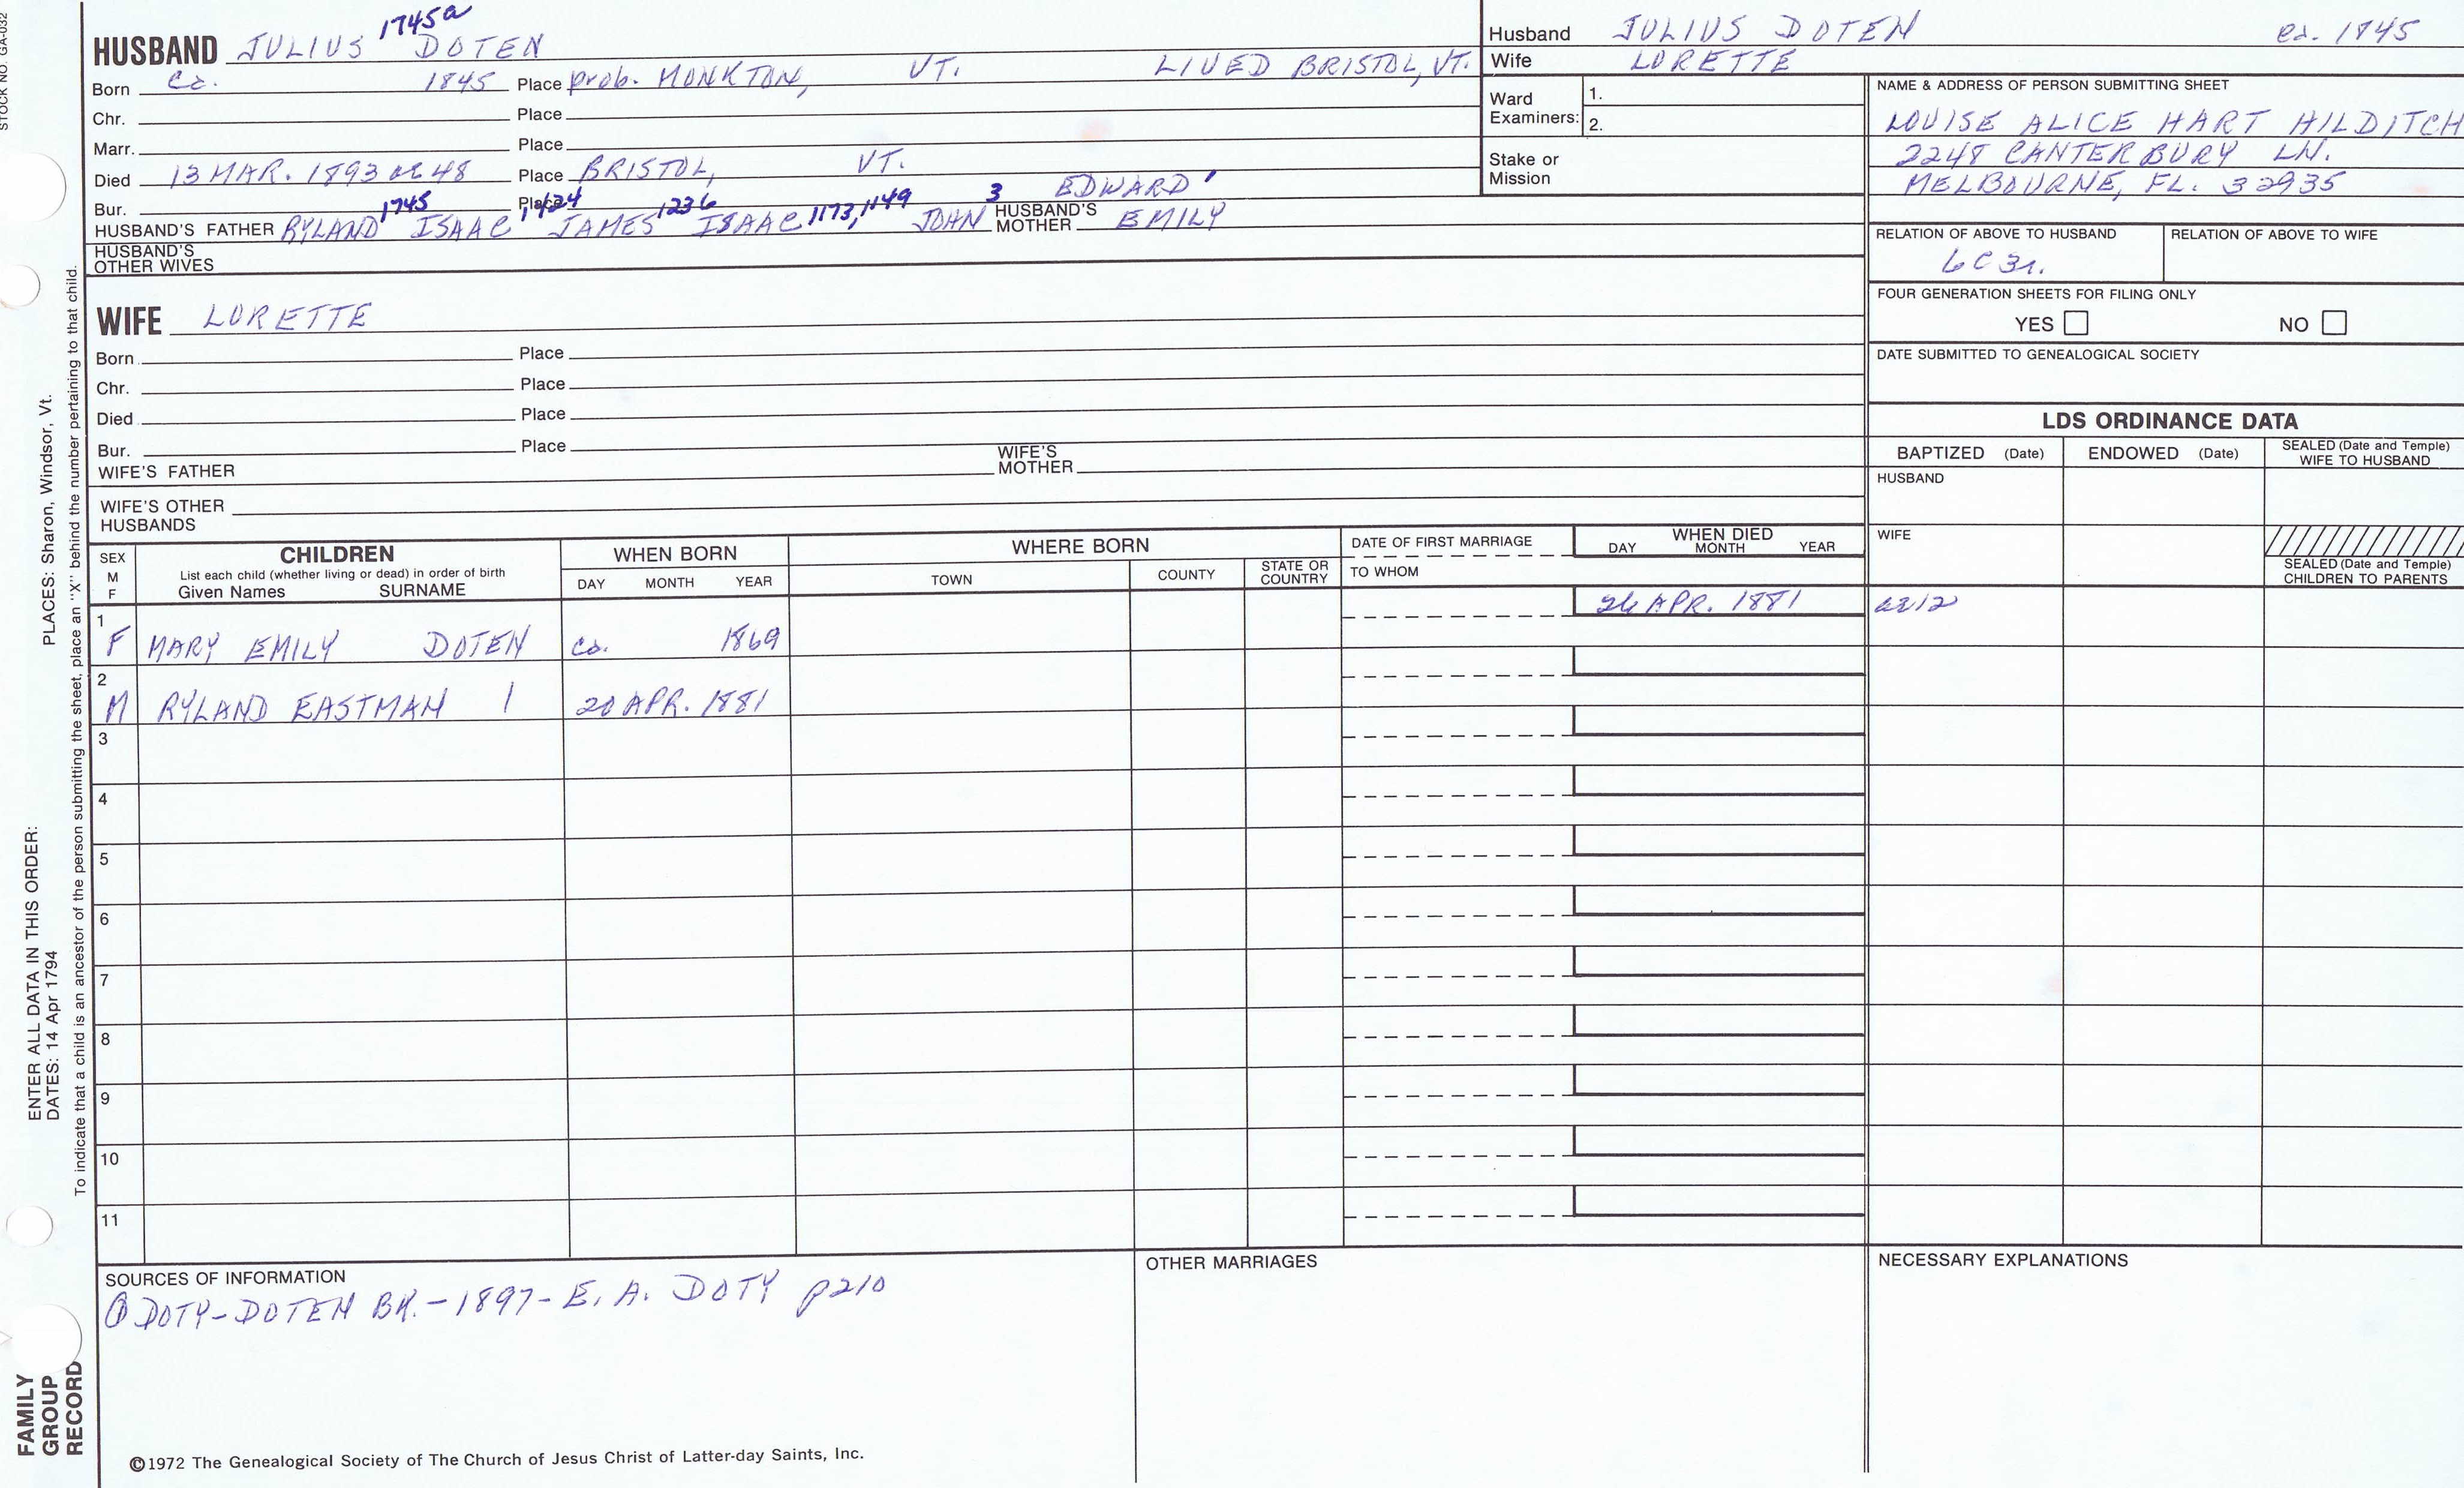 STOCK NO. GA-032
1745a
HUSBAND JULIUS DOTEN
Born ca. 1845 Place prob. MONKTON, VT. LIVED BRISTOL, VT.
Chr. Place
Marr. Place
Died 13 MAR. 1893 ae 48 Place BRISTOL, VT.
Bur. Place
1745 1424 1236 1173, 1149 3 EDWARD'
HUSBAND'S FATHER RYLAND ISAAC JAMES ISAAC JOHN HUSBAND'S MOTHER EMILY
HUSBAND'S OTHER WIVES
Husband JULIUS DOTEN ca. 1845
Wife LORETTE
Ward Examiners: 1.
2.
Stake or Mission
NAME & ADDRESS OF PERSON SUBMITTING SHEET
LOUISE ALICE HART HILDITCH
2248 CANTERBURY LN.
MELBOURNE, FL. 32935
RELATION OF ABOVE TO HUSBAND RELATION OF ABOVE TO WIFE
6C3r.
FOUR GENERATION SHEETS FOR FILING ONLY
YES NO
DATE SUBMITTED TO GENEALOGICAL SOCIETY
WIFE LORETTE
Born Place
Chr. Place
Died Place
Bur. Place
WIFE'S FATHER WIFE'S MOTHER
WIFE'S OTHER HUSBANDS
LDS ORDINANCE DATA
BAPTIZED (Date) ENDOWED (Date) SEALED (Date and Temple) WIFE TO HUSBAND
HUSBAND
WIFE
SEALED (Date and Temple) CHILDREN TO PARENTS
SEX M F
CHILDREN
List each child (whether living or dead) in order of birth
Given Names SURNAME
WHEN BORN
DAY MONTH YEAR
WHERE BORN
TOWN COUNTY STATE OR COUNTRY
DATE OF FIRST MARRIAGE
TO WHOM
WHEN DIED
DAY MONTH YEAR
1 F MARY EMILY DOTEN ca. 1869 26 APR. 1881 ae12
2 M RYLAND EASTMAN 20 APR. 1881
3
4
5
6
7
8
9
10
11
SOURCES OF INFORMATION
① DOTY-DOTEN BK.-1897-E. A. DOTY p210
OTHER MARRIAGES
NECESSARY EXPLANATIONS
©1972 The Genealogical Society of The Church of Jesus Christ of Latter-day Saints, Inc.
FAMILY GROUP RECORD
ENTER ALL DATA IN THIS ORDER:
DATES: 14 Apr 1794
PLACES: Sharon, Windsor, Vt.
To indicate that a child is an ancestor of the person submitting the sheet, place an "X" behind the number pertaining to that child.